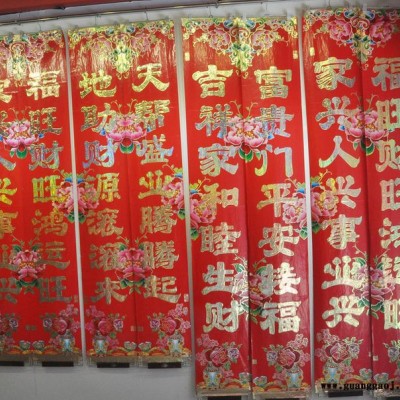 福旺财旺鸿运旺
家兴人兴事业兴
富贵门平安接福
吉祥家和睦生财
天帮盛业腾腾起
地助财源滚滚来
福旺财旺鸿运旺
家兴人兴事业兴